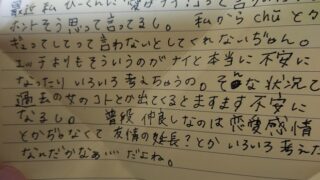 ホントそう思って言ってるし。 私から chu とか
ギュってしてって言わないとしてくれないぢゃん。
エッチよりもそういうのがナイと本当に不安に
なったり いろいろ考えちゃうの。 そんな状況で
過去の女のコトとか出てくるとますます不安に
なるし。 普段 仲良しなのは 恋愛感情
とかぢゃなくて 友情の延長？とか いろいろ考えた
なんだかなぁ…だよね。